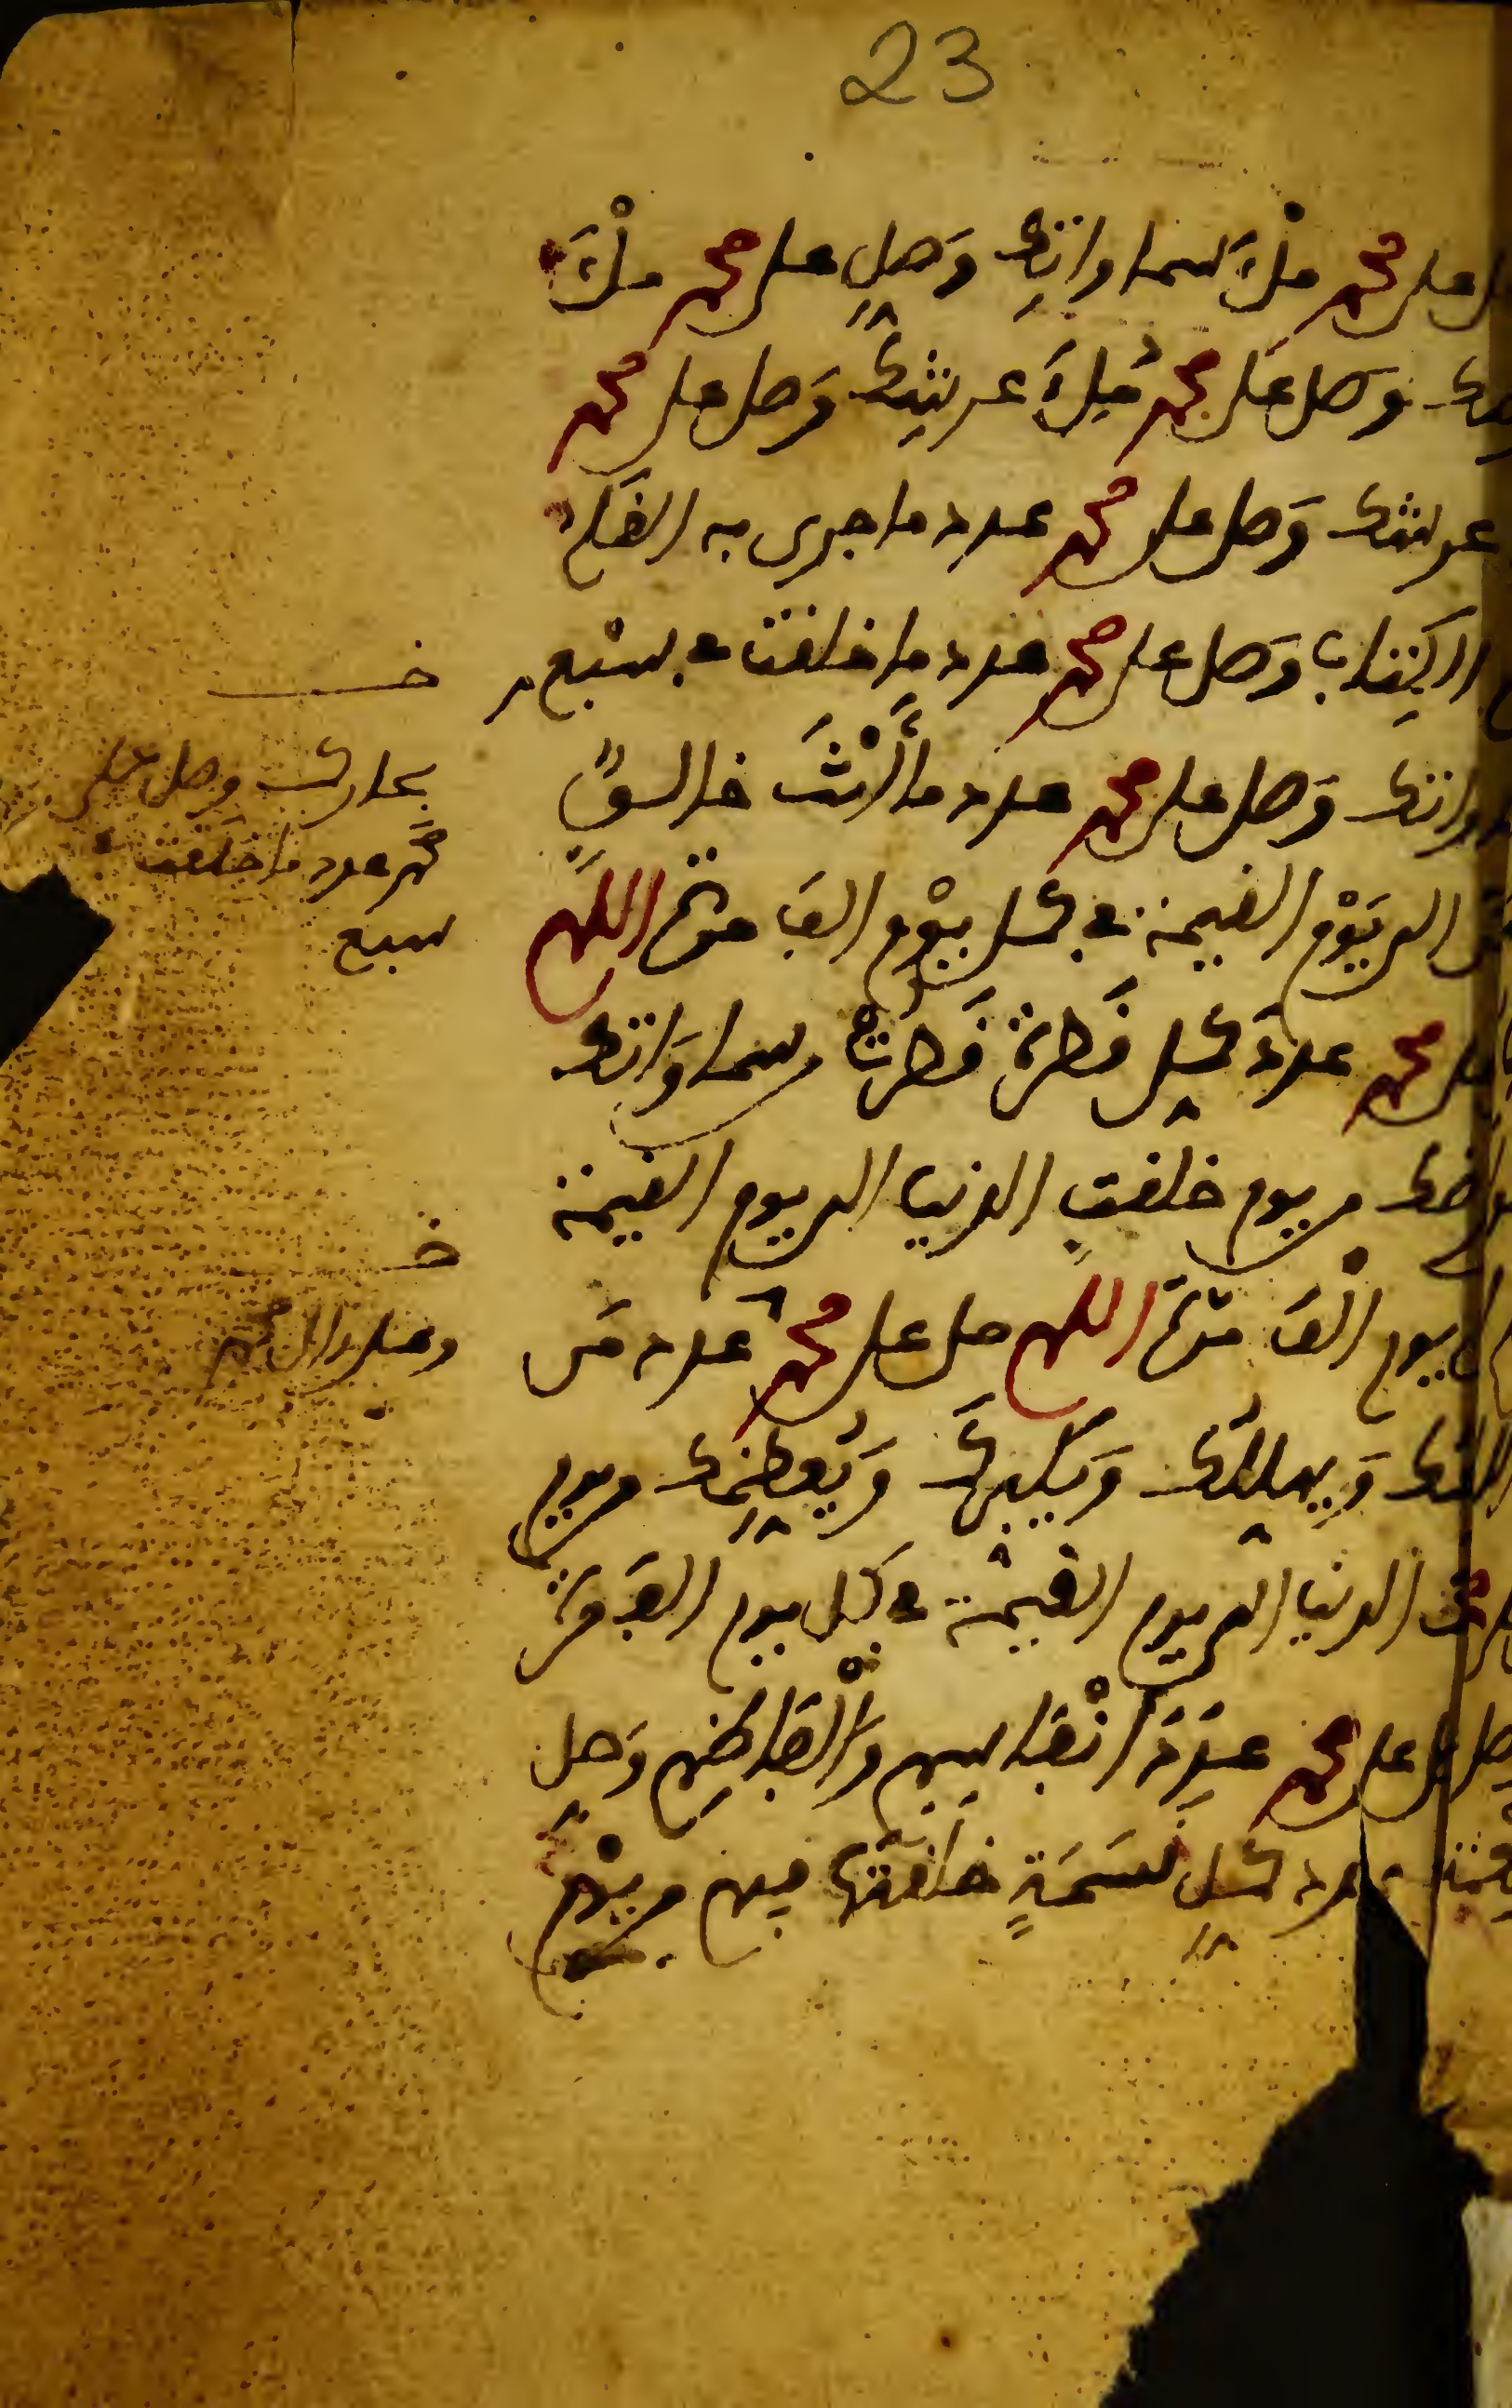 23
على محمد ملْءَ سماواتِك وَصلِّ على محمد ملْءَ
وصل على محمد مِلءَ عرشِك وَصل على محمد
عرشك وَصل على محمد عدد ما جرى به القلم
الكِتاب وَصل على محمد عدد ما خلقت في سبْع
وَصل على محمد عدد ما أنْتَ خالق
الى يَوْم القيمة في كل يوْم الف مرة اللهم
محمد عدد كل قَطرة قَطرت من سماوَاتك
من يوم خلقت الدنيا الى يوم القيمة
يوم الْف مرة اللهم صل على محمد عدد مَن
وَيهللك وَيكبرك وَيُعظِّمك من يوم
الدنيا الى يوم القيمة في كل يوم الف مرة
على محمد عدَدَ انْفاسهم وَالْفاظهم وَصل
عدد كل نسَمَةٍ خلقتها فيهم من يوْم
خ
بحارك وصل على
محمد عدد ما خلقت في
سبع
خ
وعلى ال محمد